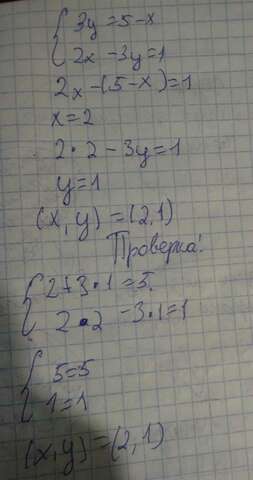 3y=5-x
2x-3y=1
2x-(5-x)=1
x=2
2·2-3y=1
y=1
(x,y)=(2,1)
Проверка:
2+3·1=5.
2·2-3·1=1
5=5
1=1
(x,y)=(2,1)